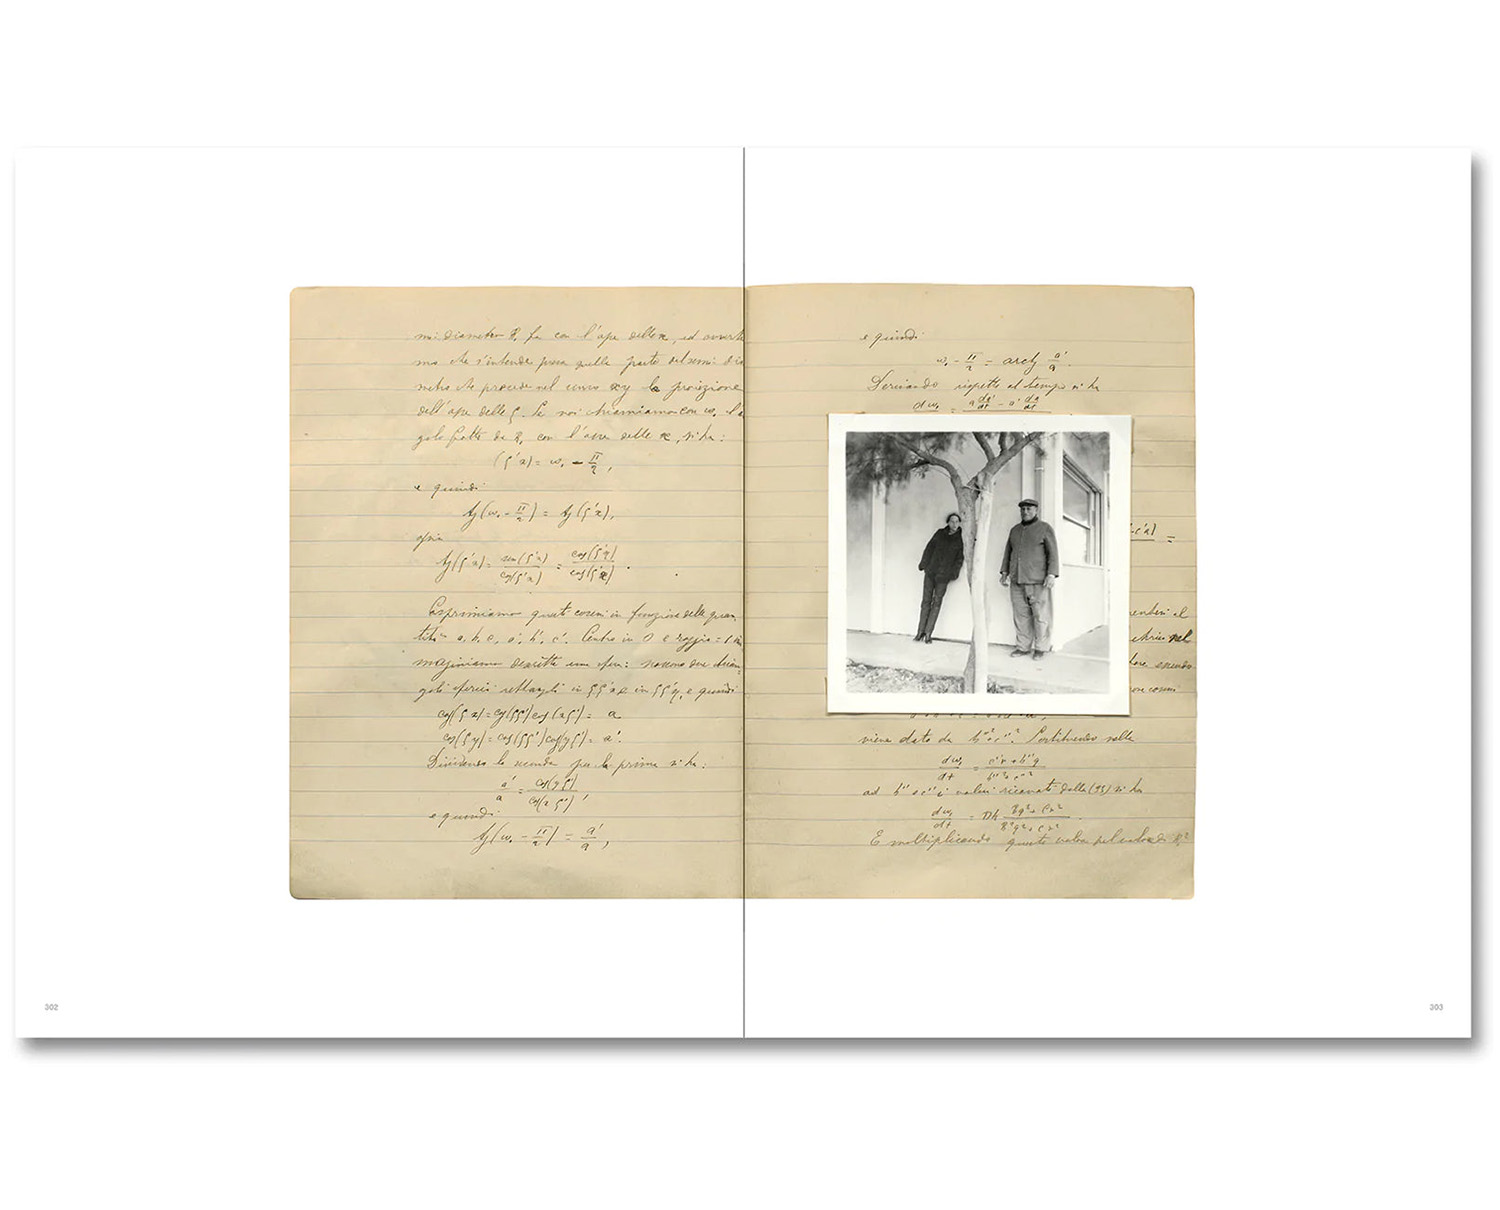 mi diametro R, fa con l'asse delle x, ed avverti
mo che s'intende presa quella parte del semi dia
metro che procede nel verso xy la proiezione
dell'asse delle ζ. Se noi chiamiamo con ω, l'a
golo fatto da R, con l'asse delle x, si ha:
(ζ'x) = ω, - π/2,
e quindi
tg(ω, - π/2) = tg(ζ'x),
ossia
tg(ζ'x) = sen(ζ'x)/cos(ζ'x) = cos(ζ'y)/cos(ζ'x).
Esprimiamo questi coseni in funzione delle quan
tità a, b, c, a', b', c'. Centro in O e raggio = 1 im
maginiamo descritta una sfera: nascono due trian
goli sferici rettangoli in ζζ'x e in ζζ'y, e quindi
cos(ζx) = cos(ζζ')cos(xζ') = a
cos(ζy) = cos(ζζ')cos(yζ') = a'.
Dividendo la seconda per la prima si ha:
a'/a = cos(yζ')/cos(xζ'),
e quindi
tg(ω, - π/2) = a'/a,
302
e quindi
ω, - π/2 = arctg a'/a.
Derivando rispetto al tempo si ha
dω,/dt = a da'/dt - a' da/dt
-c'x) =
viene dato da b''² + c''². Sostituendo nella
dω,/dt = c''r + b''q / b''² + c''²
ad b'' e c'' i valori ricavati dalle (95) si ha
E moltiplicando questo valore pel valore di R,²
303